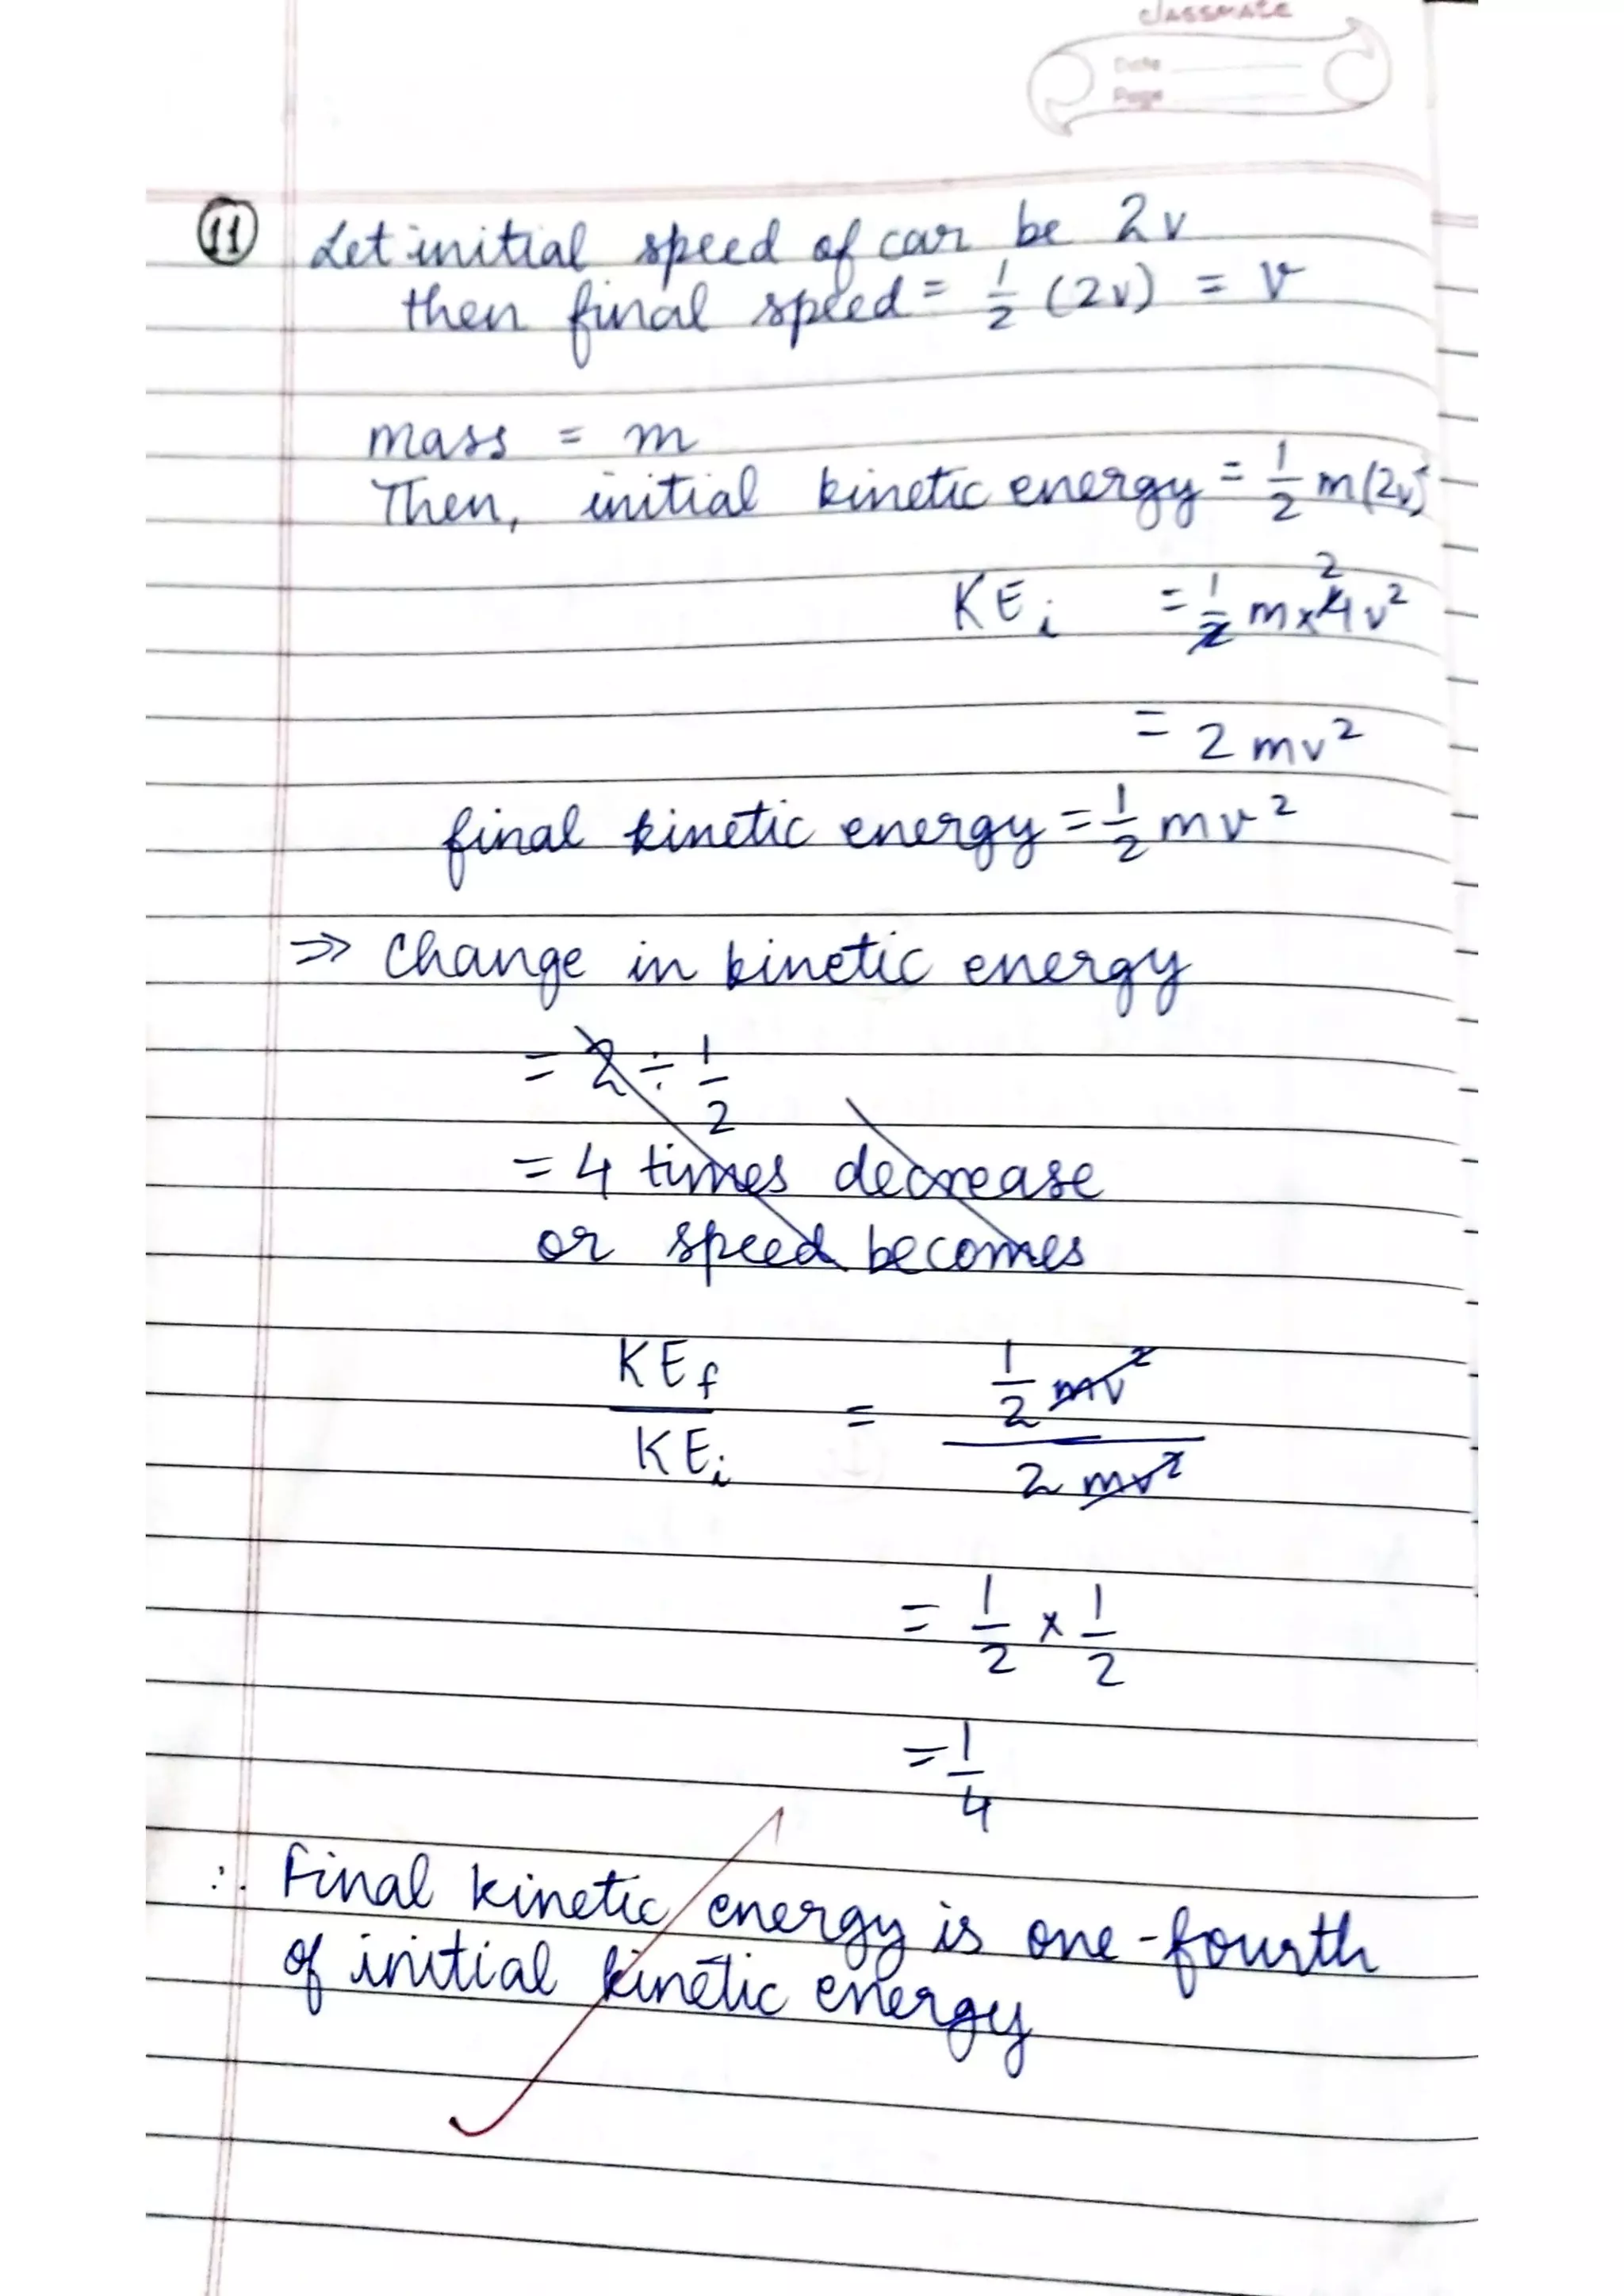 classmate
Date
Page
11 Let initial speed of car be 2v
then final speed = 1/2 (2v) = v
mass = m
Then, initial kinetic energy = 1/2 m(2v)²
KEi = 1/2 m x 4v² 2
= 2 mv²
final kinetic energy = 1/2 mv²
⇒ Change in kinetic energy
= 2 ÷ 1/2
= 4 times decrease
or speed becomes
KEf/KEi = 1/2 mv² / 2 mv²
= 1/2 x 1/2
= 1/4
∴ Final kinetic energy is one-fourth
of initial kinetic energy